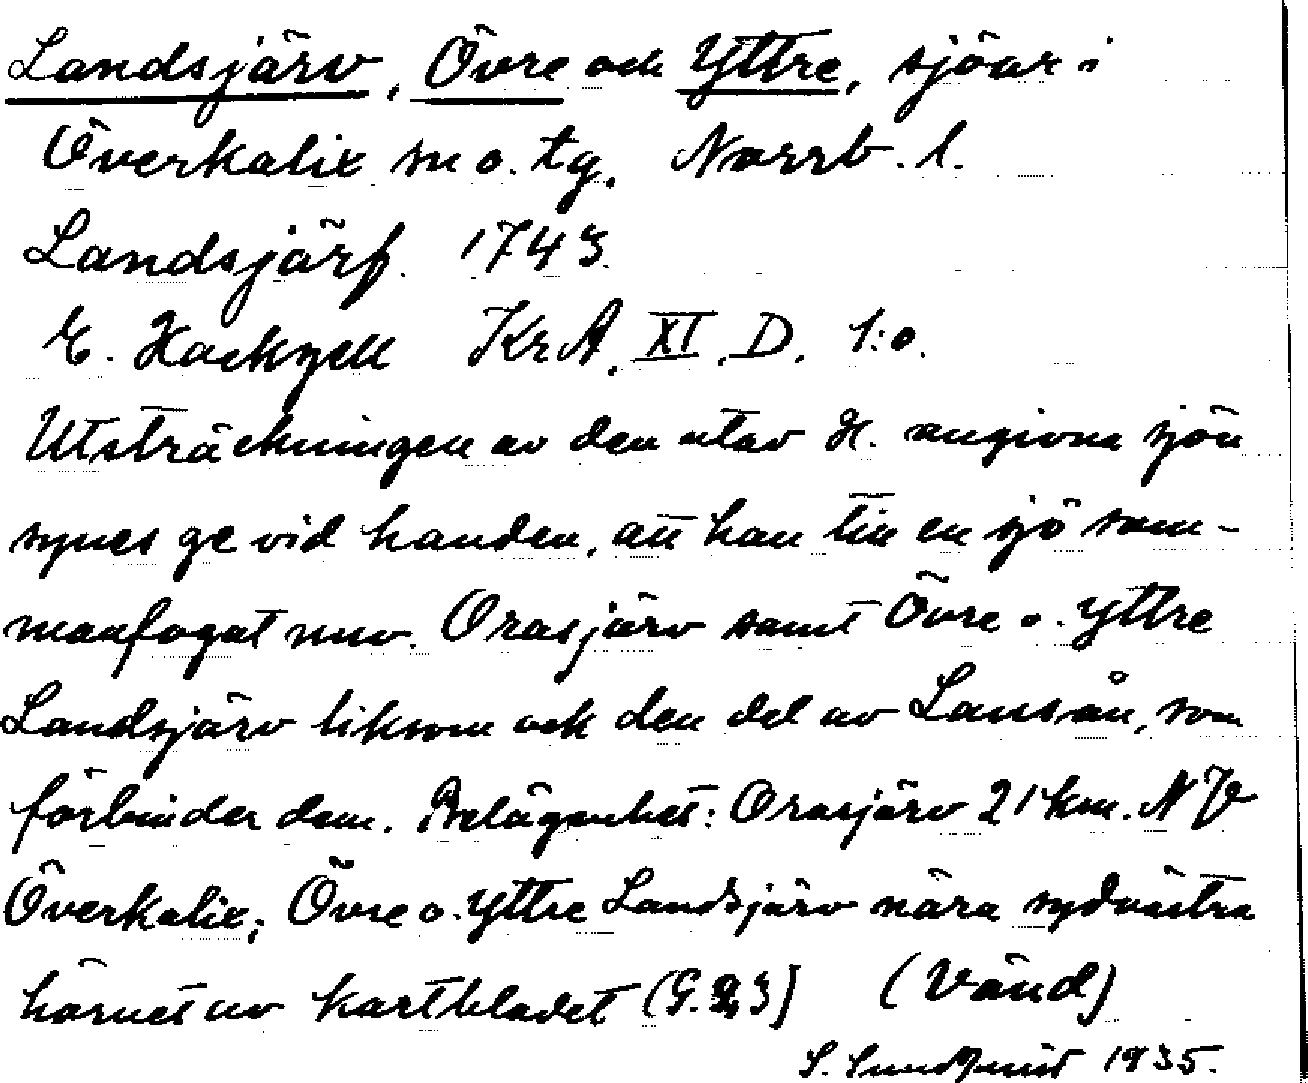 Landsjärv, Övre och Yttre, sjöar i
Överkalix sn o. tg, Norrb. l.
Landsjärf. 1743
E. Hackzell KrA. XI. D. 1:o.
Utsträckningen av den utav H. angivna sjön
synes ge vid handen, att han till en sjö sam-
manfogat nuv. Orasjärv samt Övre o. Yttre
Landsjärv liksom ock den del av Lansån, som
förbinder dem. Belägenhet: Orasjärv 21 km. NV
Överkalix; Övre o. Yttre Landsjärv nära sydvästra
hörnet av kartbladet (G. 23) (Vänd)
S. Lundqvist 1935.